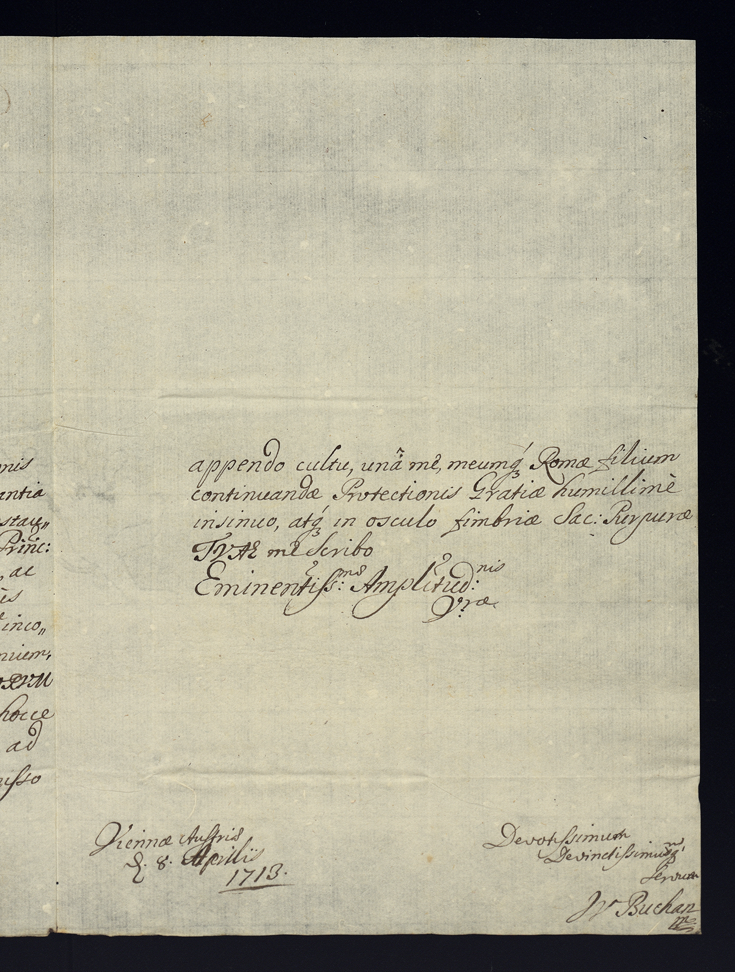 nis
antia
stau„
Princ:
, ac
ès
inco„
niem,
hocce
ad
usso
appendo cultu, unâ mè, meumq́ꝫ Romæ filium
continuandæ Protectionis Gratiæ humillimè
insinuo, atq́ꝫ in osculo fimbriæ Sac: Purpuræ
TVAE mè Scribo
Eminentiss:mæ Amplitud:nis
Vræ
Viennæ Austriæ
d. 8. Aprilis
1713.
Devotissimum
Devinctissimumq́ꝫ
Servum
Buchan